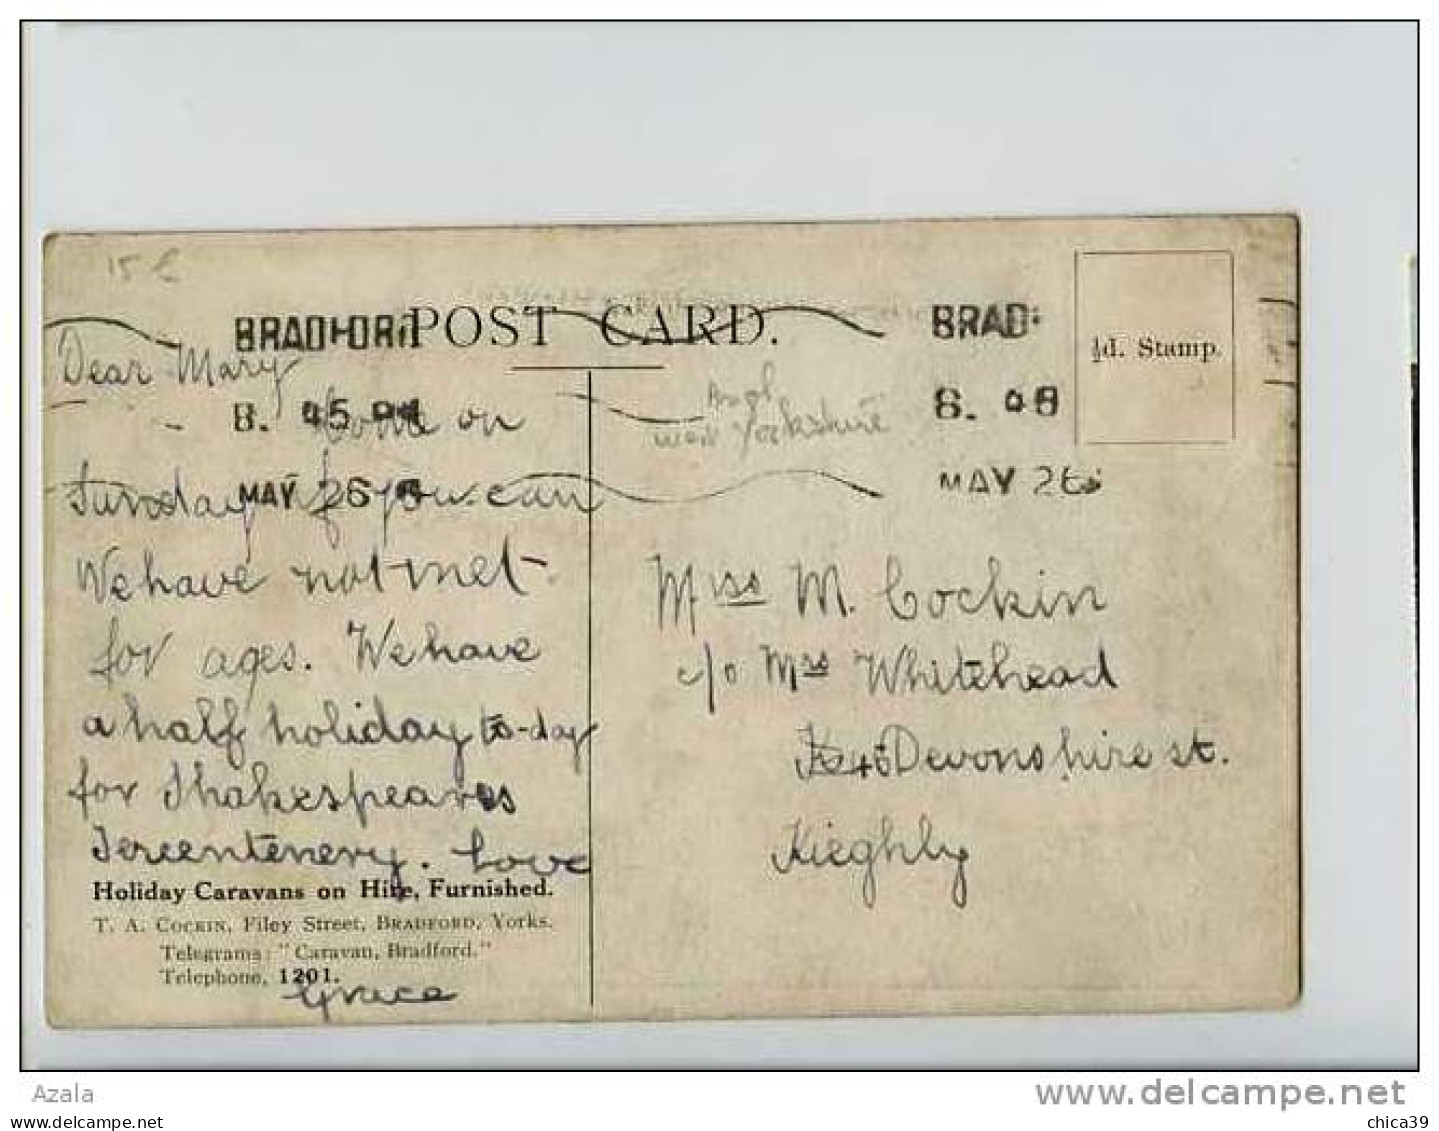 15 €
POST CARD.
BRADFORD
8. 45 PM
MAY 26
BRAD
MAY 26
½d. Stamp.
Dear Mary
Come on
Sunday if you can
We have not met
for ages. We have
a half holiday to-day
for Shakespeares
Tercentenery. Love
Grace
Holiday Caravans on Hire, Furnished.
T. A. COCKIN, Filey Street, BRADFORD, Yorks.
Telegrams: "Caravan, Bradford."
Telephone, 1201.
West Yorkshire
Miss M. Cockin
c/o Mrs Whitehead
45 Devonshire st.
Kieghly
Azala
www.delcampe.net
chica39